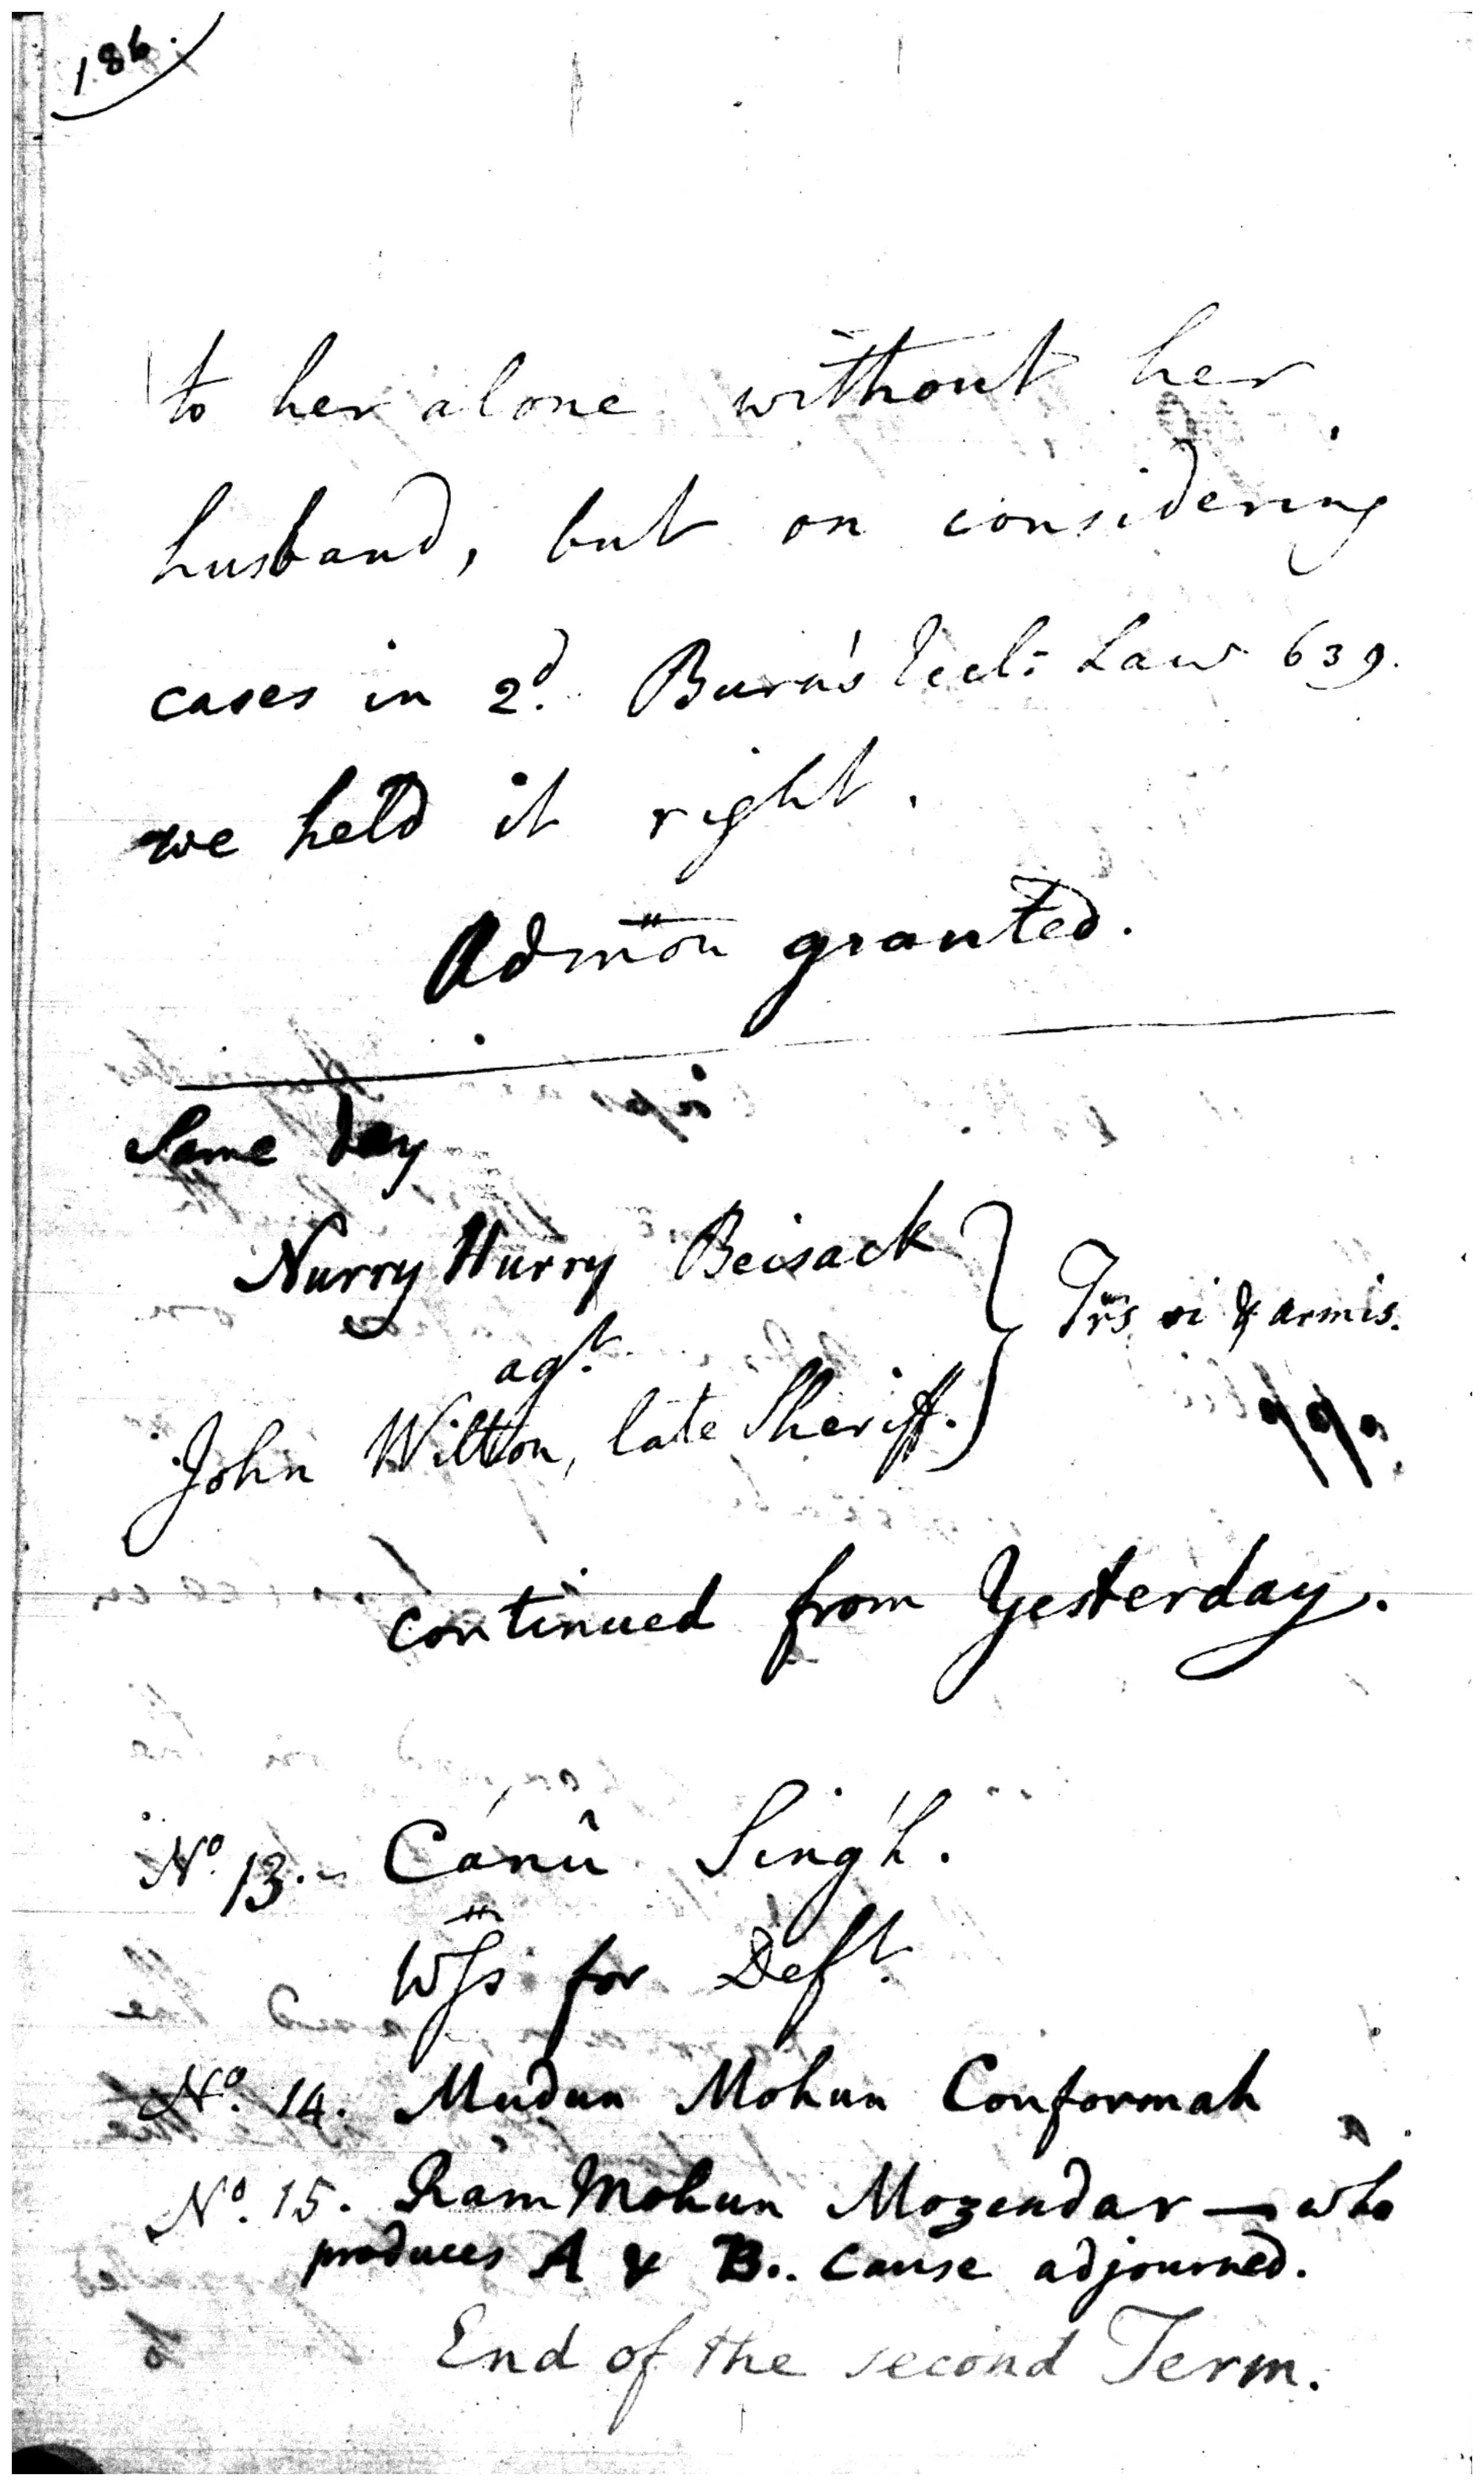 186.
to her alone without her
husband, but on considering
cases in 2d. Burn's Eccl: Law 639.
we held it right.
Admon granted.
Same day
Nurry Hurry Beisack
agt.
Trs vi & armis.
John Wilton, late Sheriff.
continued from Yesterday.
No. 13. Canû Singh.
Wss for Deft.
No. 14. Mudun Mohun Conformah
No. 15. Rám Mohun Mozendar — who
produces A & B.. cause adjourned.
End of the second Term.